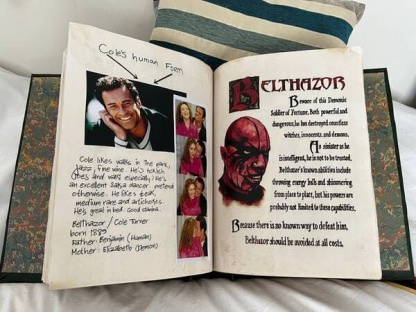 Cole's human Form
Cole likes walks in the park,
Jazz, fine wine. He's ticklish
toes and ears especially. He's
an excellent salsa dancer
otherwise. He likes steak,
medium rare and artichokes.
He's great in bed. Good
Belthazor / Cole Turner
born 1885
Father: Benjamin (Human)
Mother: Elizabeth (Demon)
BELTHAZOR
Beware of this Demonic
Soldier of Fortune. Both powerful and
dangerous, he has destroyed countless
witches, innocents, and demons.
As sinister as he
is intelligent, he is not to be trusted.
Belthazor's known abilities include
throwing energy balls and shimmering
from place to place, but his powers are
probably not limited to these capabilities.
Because there is no known way to defeat him,
Belthazor should be avoided at all costs.